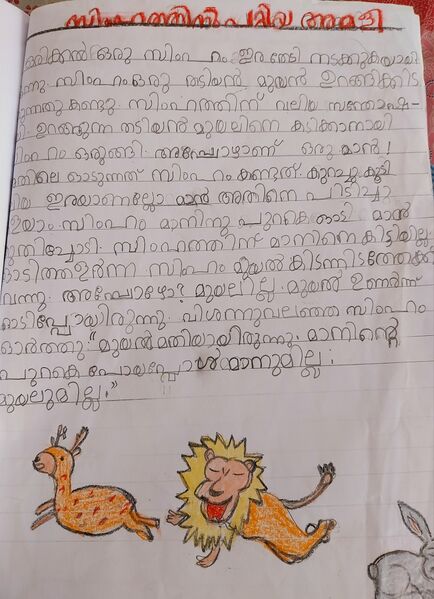 സിംഹത്തിന് പറ്റിയ അമളി
ഒരിക്കൽ ഒരു സിംഹം ഇര തേടി നടക്കുകയായി
രുന്നു. സിംഹം ഒരു തടിയൻ മുയൽ ഉറങ്ങിക്കിട
ക്കുന്നതു കണ്ടു. സിംഹത്തിന് വലിയ സന്തോഷ-
ഉറങ്ങുന്ന തടിയൻ മുയലിനെ കടിക്കാനായി
സിംഹം ഒരുങ്ങി. അപ്പോഴാണ് ഒരു മാൻ!
അതിലെ ഓടുന്നത് സിംഹം കണ്ടത്. കുറച്ചു കൂടി
വലിയ ഇരയാണല്ലോ മാൻ അതിനെ പിടിച്ചു
കളയാം. സിംഹം മാനിനു പുറകെ ഓടി. മാൻ
കുതിച്ചോടി. സിംഹത്തിന് മാനിനെ കിട്ടിയില്ല.
ഓടിത്തളർന്ന സിംഹം മുയൽ കിടന്നിടത്തേക്ക്
വന്നു. അപ്പോഴോ? മുയലില്ല. മുയൽ ഉണർന്ന്
ഓടിപ്പോയിരുന്നു. വിശന്നുവലഞ്ഞ സിംഹം
ഓർത്തു. "മുയൽ മതിയായിരുന്നു. മാനിന്റെ
പുറകെ പോയപ്പോൾ മാനുമില്ല;
മുയലുമില്ല."